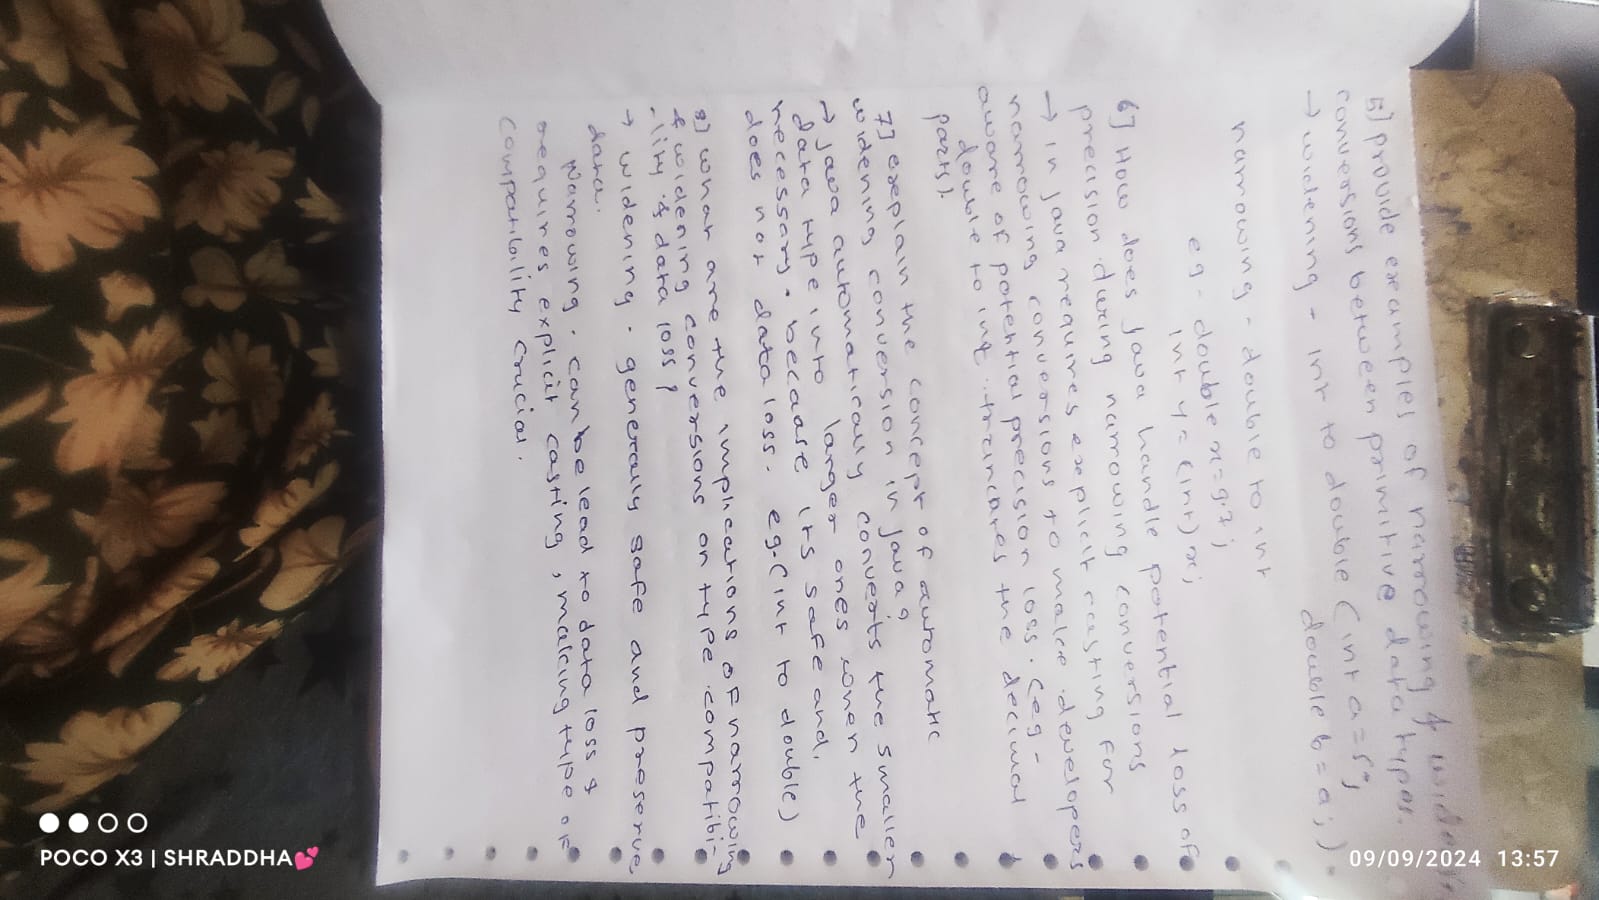 5] provide examples of narrowing & widen
conversions between primitive data types.
→ widening - int to double (int a=5;
double b = a;).
narrowing - double to int
eg - double x=9.7;
int y = (int) x;
6] How does java handle potential loss of
precision during narrowing conversions
→ in java requires explicit casting for
narrowing conversions to make developers
aware of potential precision loss. (eg-
double to int truncates the decimal
parts).
7] explain the concept of automatic
widening conversion in java?
→ java automatically converts the smaller
data type into larger ones when the
necessary. because its safe and.
does not data loss. eg.(int to double)
8] what are the implications of narrowing
& widening conversions on type compatibi-
-lity & data loss?
→ widening. generally safe and preserve
data.
Narrowing. can be lead to data loss &
requires explicit casting, making type of
compatibility crucial.
POCO X3 | SHRADDHA💕
09/09/2024 13:57